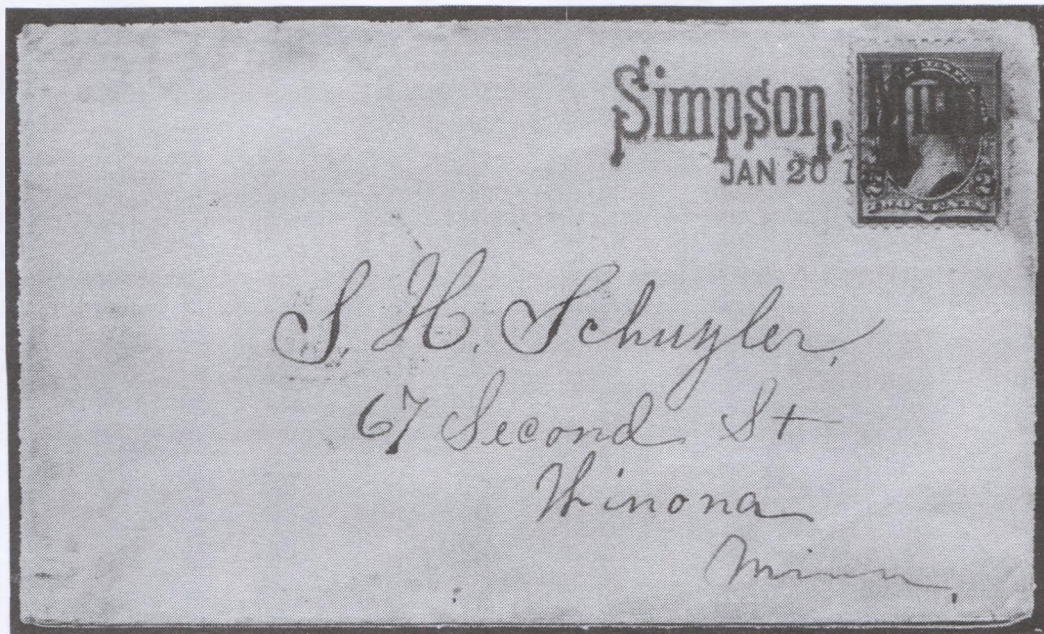 Simpson, Minn
JAN 20 1
2 2
TWO CENTS
S. H. Schuyler,
67 Second St
Winona
Minn,